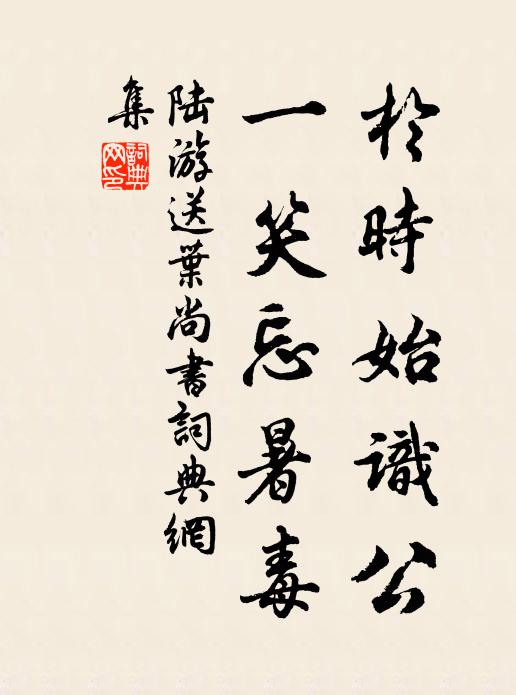 於時始識公
一笑忘暑毒
陸游送葉尚書詞典網
集
詞典網印